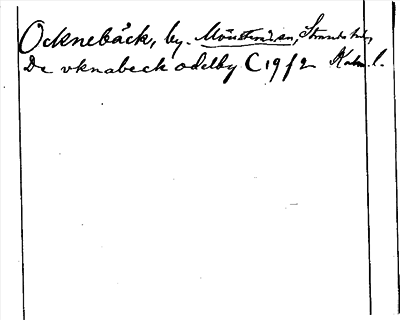 Ocknebäck, by. Mönsterås, Stranda hd,
De vknabeck odelby C 19 f 2 Kalm. l.